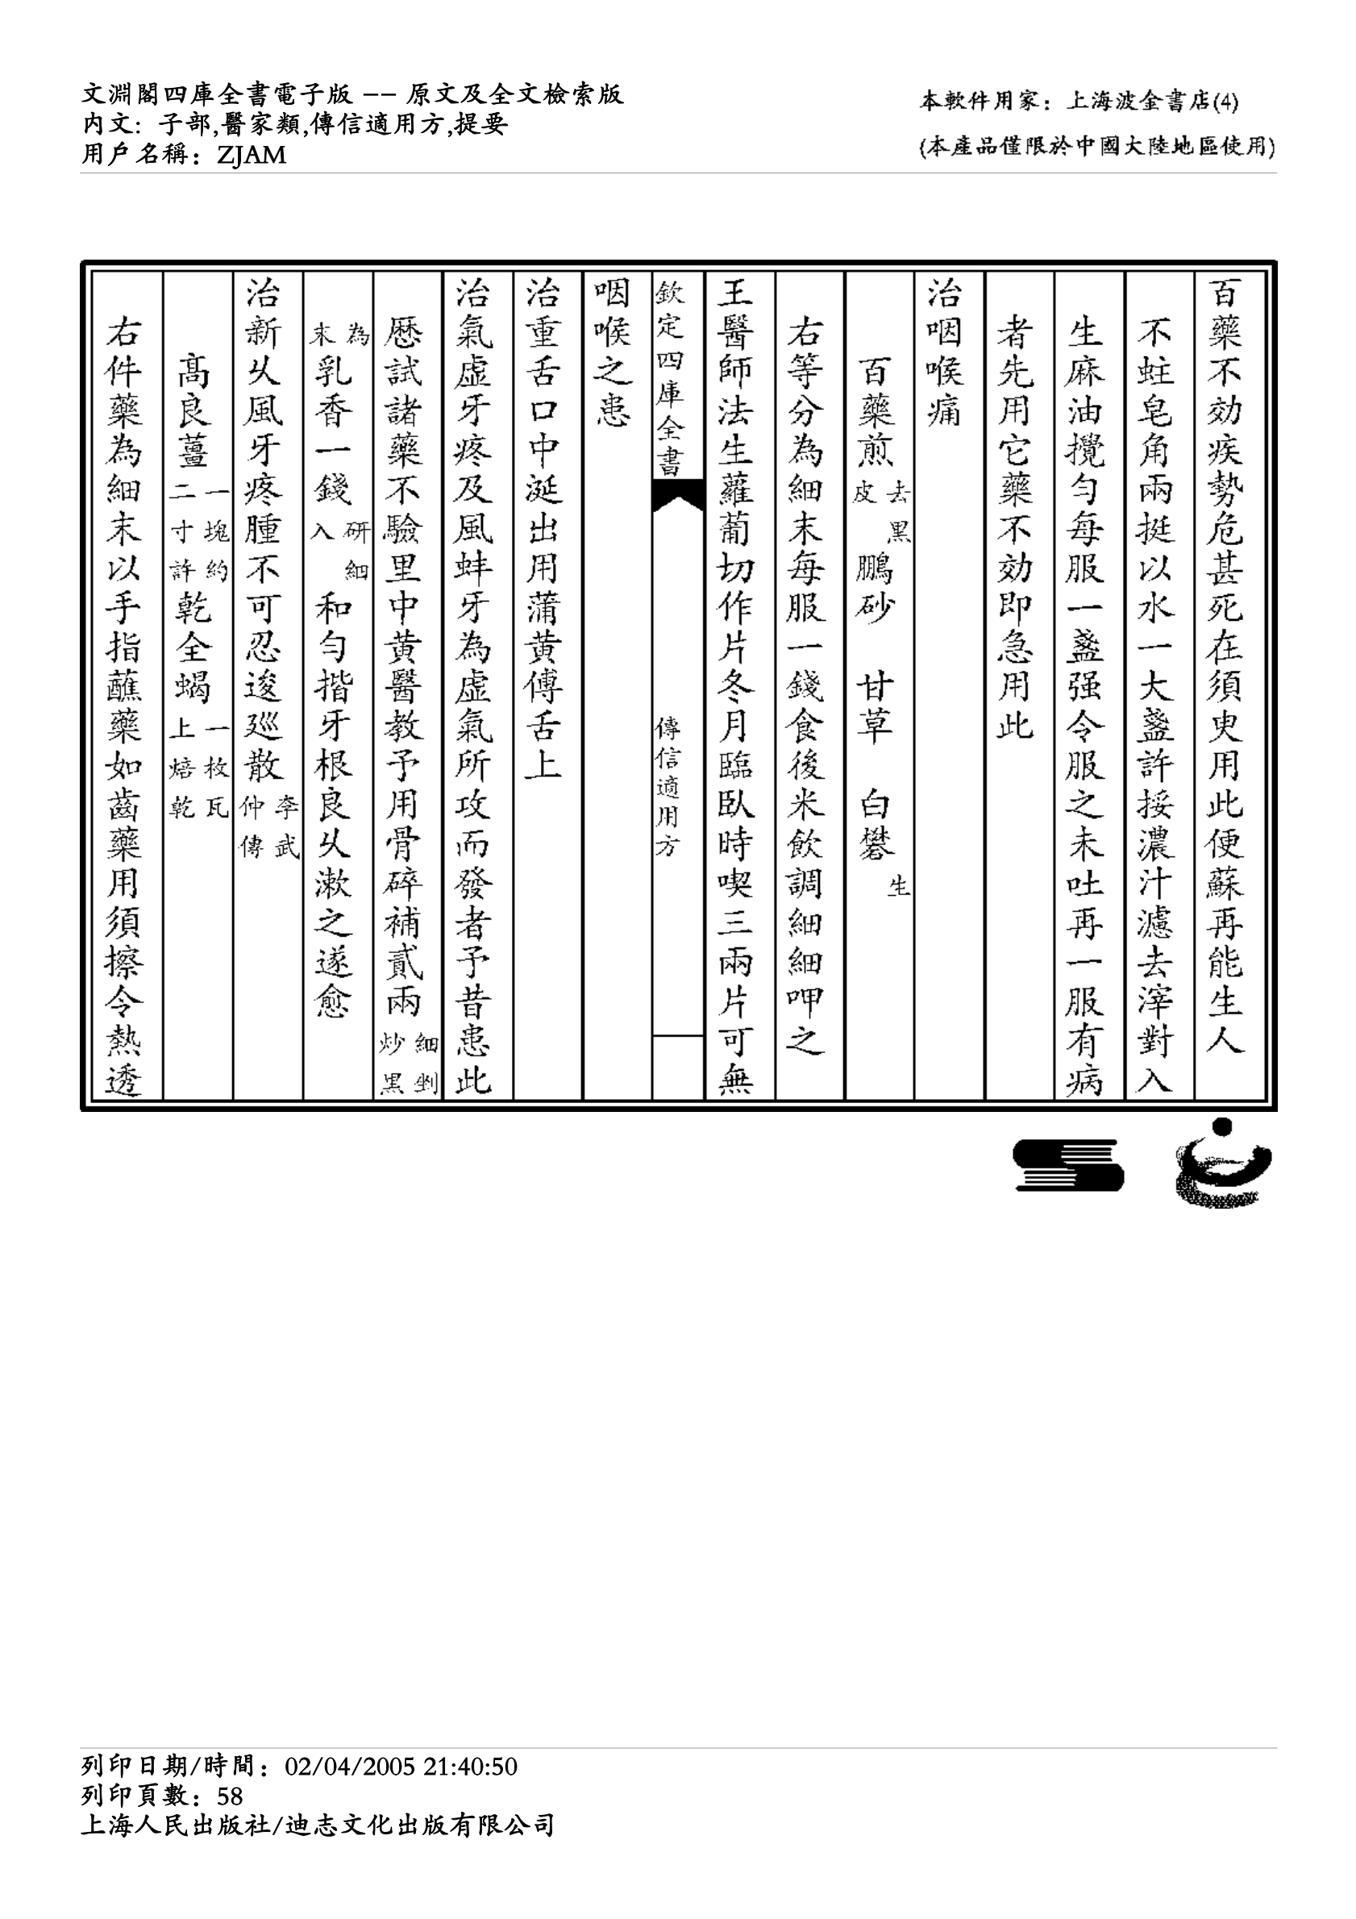 文淵閣四庫全書電子版 -- 原文及全文檢索版
內文: 子部,醫家類,傳信適用方,提要
用戶名稱: ZJAM
本軟件用家: 上海波金書店(4)
(本產品僅限於中國大陸地區使用)
百藥不効疾勢危甚死在須臾用此便蘇再能生人
不蛀皂角兩挺以水一大盞許挼濃汁濾去滓對入
生麻油攪勻每服一盞强令服之未吐再一服有病
者先用它藥不効即急用此
治咽喉痛
百藥煎去黑皮 鵬砂 甘草 白礬生
右等分為細末每服一錢食後米飲調細細呷之
王醫師法生蘿蔔切作片冬月臨臥時喫三兩片可無
欽定四庫全書 傳信適用方
咽喉之患
治重舌口中涎出用蒲黃傅舌上
治氣虛牙疼及風蚌牙為虛氣所攻而發者予昔患此
歷試諸藥不驗里中黃醫教予用骨碎補貳兩細剉炒黑
為末乳香一錢研細入和勻揩牙根良乆漱之遂愈
治新乆風牙疼腫不可忍逡廵散李武仲傳
髙良薑一塊約二寸許乾全蝎一枚瓦上焙乾
右件藥為細末以手指蘸藥如齒藥用須擦令熱透
列印日期/時間: 02/04/2005 21:40:50
列印頁數: 58
上海人民出版社/迪志文化出版有限公司